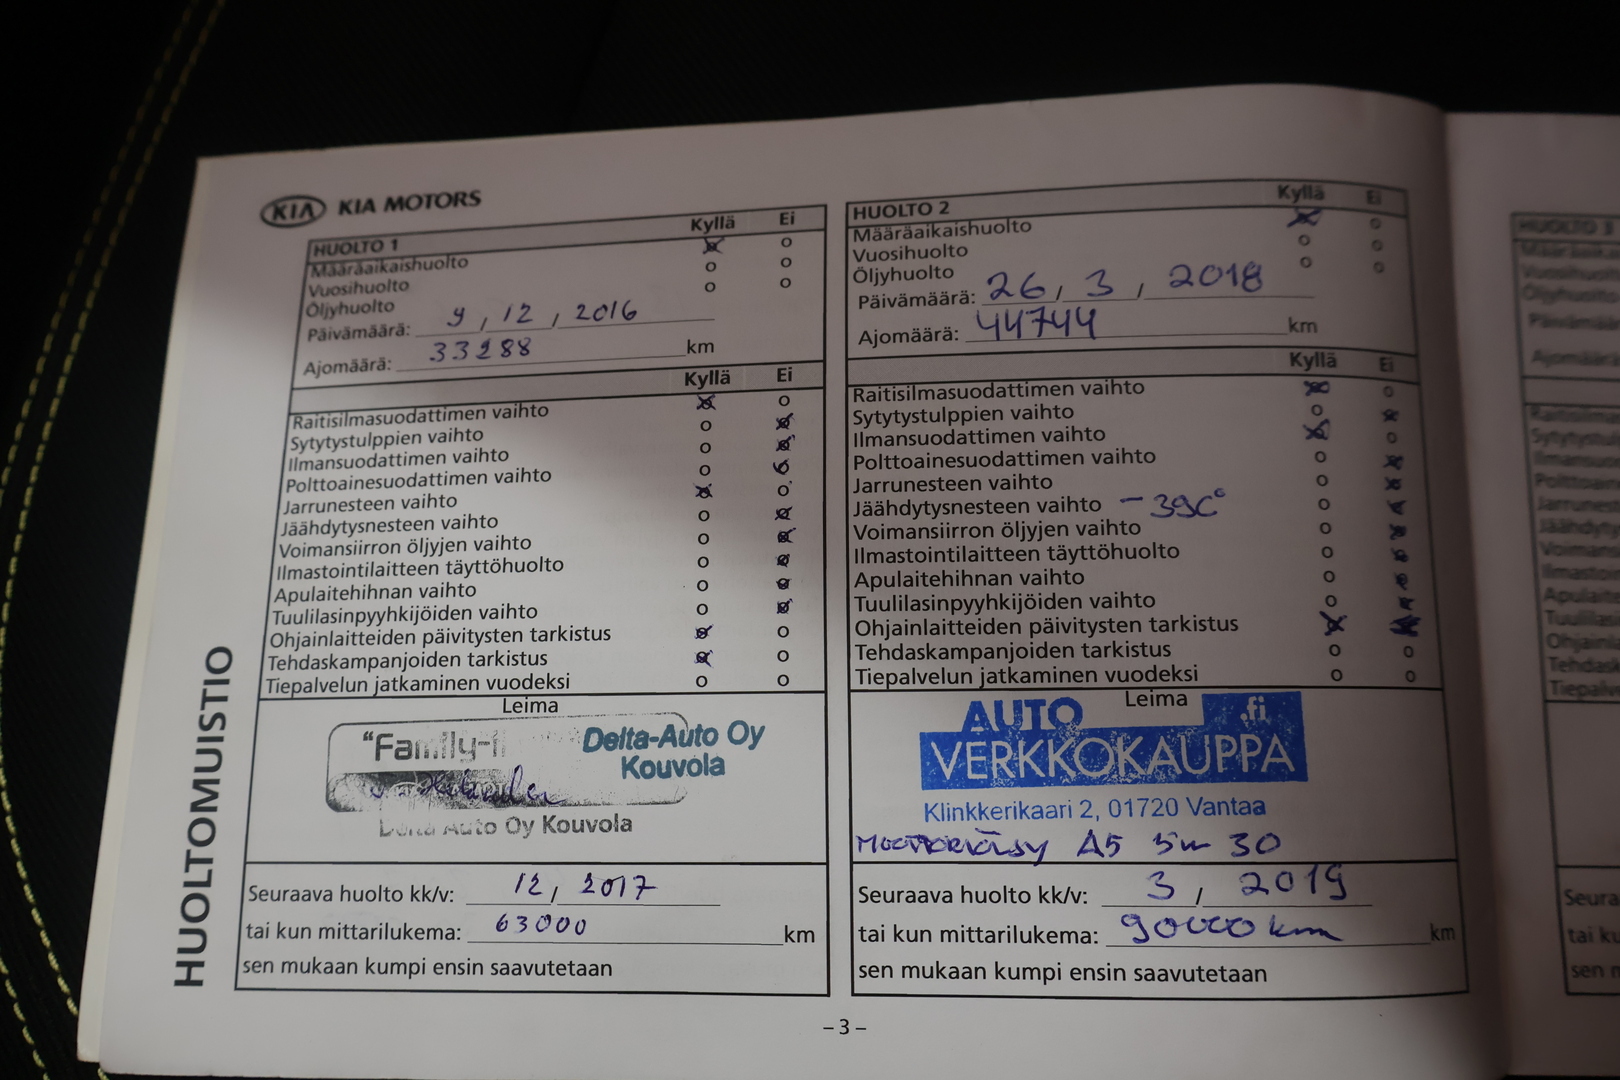 KIA KIA MOTORS
HUOLTOMUISTIO
HUOLTO 1 Kyllä Ei
Määräaikaishuolto
Vuosihuolto
Öljyhuolto
Päivämäärä: 9, 12, 2016
Ajomäärä: 33288 km
Kyllä Ei
Raitisilmasuodattimen vaihto
Sytytystulppien vaihto
Ilmansuodattimen vaihto
Polttoainesuodattimen vaihto
Jarrunesteen vaihto
Jäähdytysnesteen vaihto
Voimansiirron öljyjen vaihto
Ilmastointilaitteen täyttöhuolto
Apulaitehihnan vaihto
Tuulilasinpyyhkijöiden vaihto
Ohjainlaitteiden päivitysten tarkistus
Tehdaskampanjoiden tarkistus
Tiepalvelun jatkaminen vuodeksi
Leima
Delta-Auto Oy
Kouvola
Delta Auto Oy Kouvola
Seuraava huolto kk/v: 12, 2017
tai kun mittarilukema: 63000 km
sen mukaan kumpi ensin saavutetaan
HUOLTO 2 Kyllä Ei
Määräaikaishuolto
Vuosihuolto
Öljyhuolto
Päivämäärä: 26, 3, 2018
Ajomäärä: 44744 km
Kyllä Ei
Raitisilmasuodattimen vaihto
Sytytystulppien vaihto
Ilmansuodattimen vaihto
Polttoainesuodattimen vaihto
Jarrunesteen vaihto
Jäähdytysnesteen vaihto -39C°
Voimansiirron öljyjen vaihto
Ilmastointilaitteen täyttöhuolto
Apulaitehihnan vaihto
Tuulilasinpyyhkijöiden vaihto
Ohjainlaitteiden päivitysten tarkistus
Tehdaskampanjoiden tarkistus
Tiepalvelun jatkaminen vuodeksi
Leima
AUTO .fi
VERKKOKAUPPA
Klinkkerikaari 2, 01720 Vantaa
A5 5w 30
Seuraava huolto kk/v: 3, 2019
tai kun mittarilukema: 90000 km km
sen mukaan kumpi ensin saavutetaan
– 3 –
HUOLTO 3